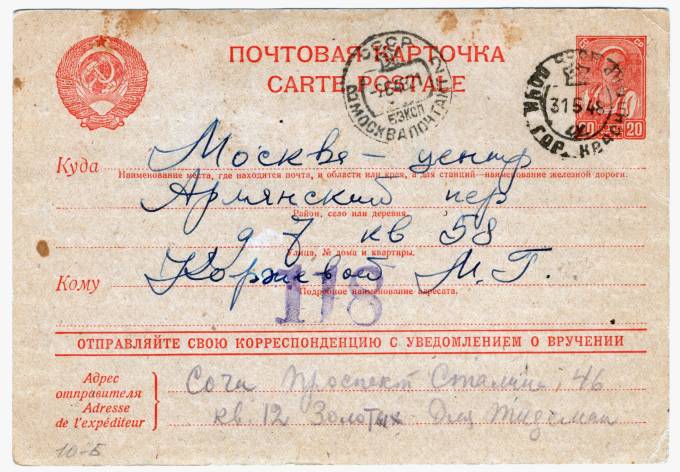 ПОЧТОВАЯ КАРТОЧКА
CARTE POSTALE
СССР
МОСКВА ПОЧТАМТ
ЭКСП
31 5 48
20 20
Куда Москва - центр
Наименование места, где находится почта, и области или края, а для станций—наименование железной дороги.
Армянский пер
Район, село или деревня.
д 7 кв 58
Улица, № дома и квартиры.
Кому Коржевой М.Г.
Подробное наименование адресата.
118
ОТПРАВЛЯЙТЕ СВОЮ КОРРЕСПОНДЕНЦИЮ С УВЕДОМЛЕНИЕМ О ВРУЧЕНИИ
Адрес отправителя
Adresse de l'expéditeur
Сочи Проспект Сталина, 46
кв. 12 Золотых Для
10-Б